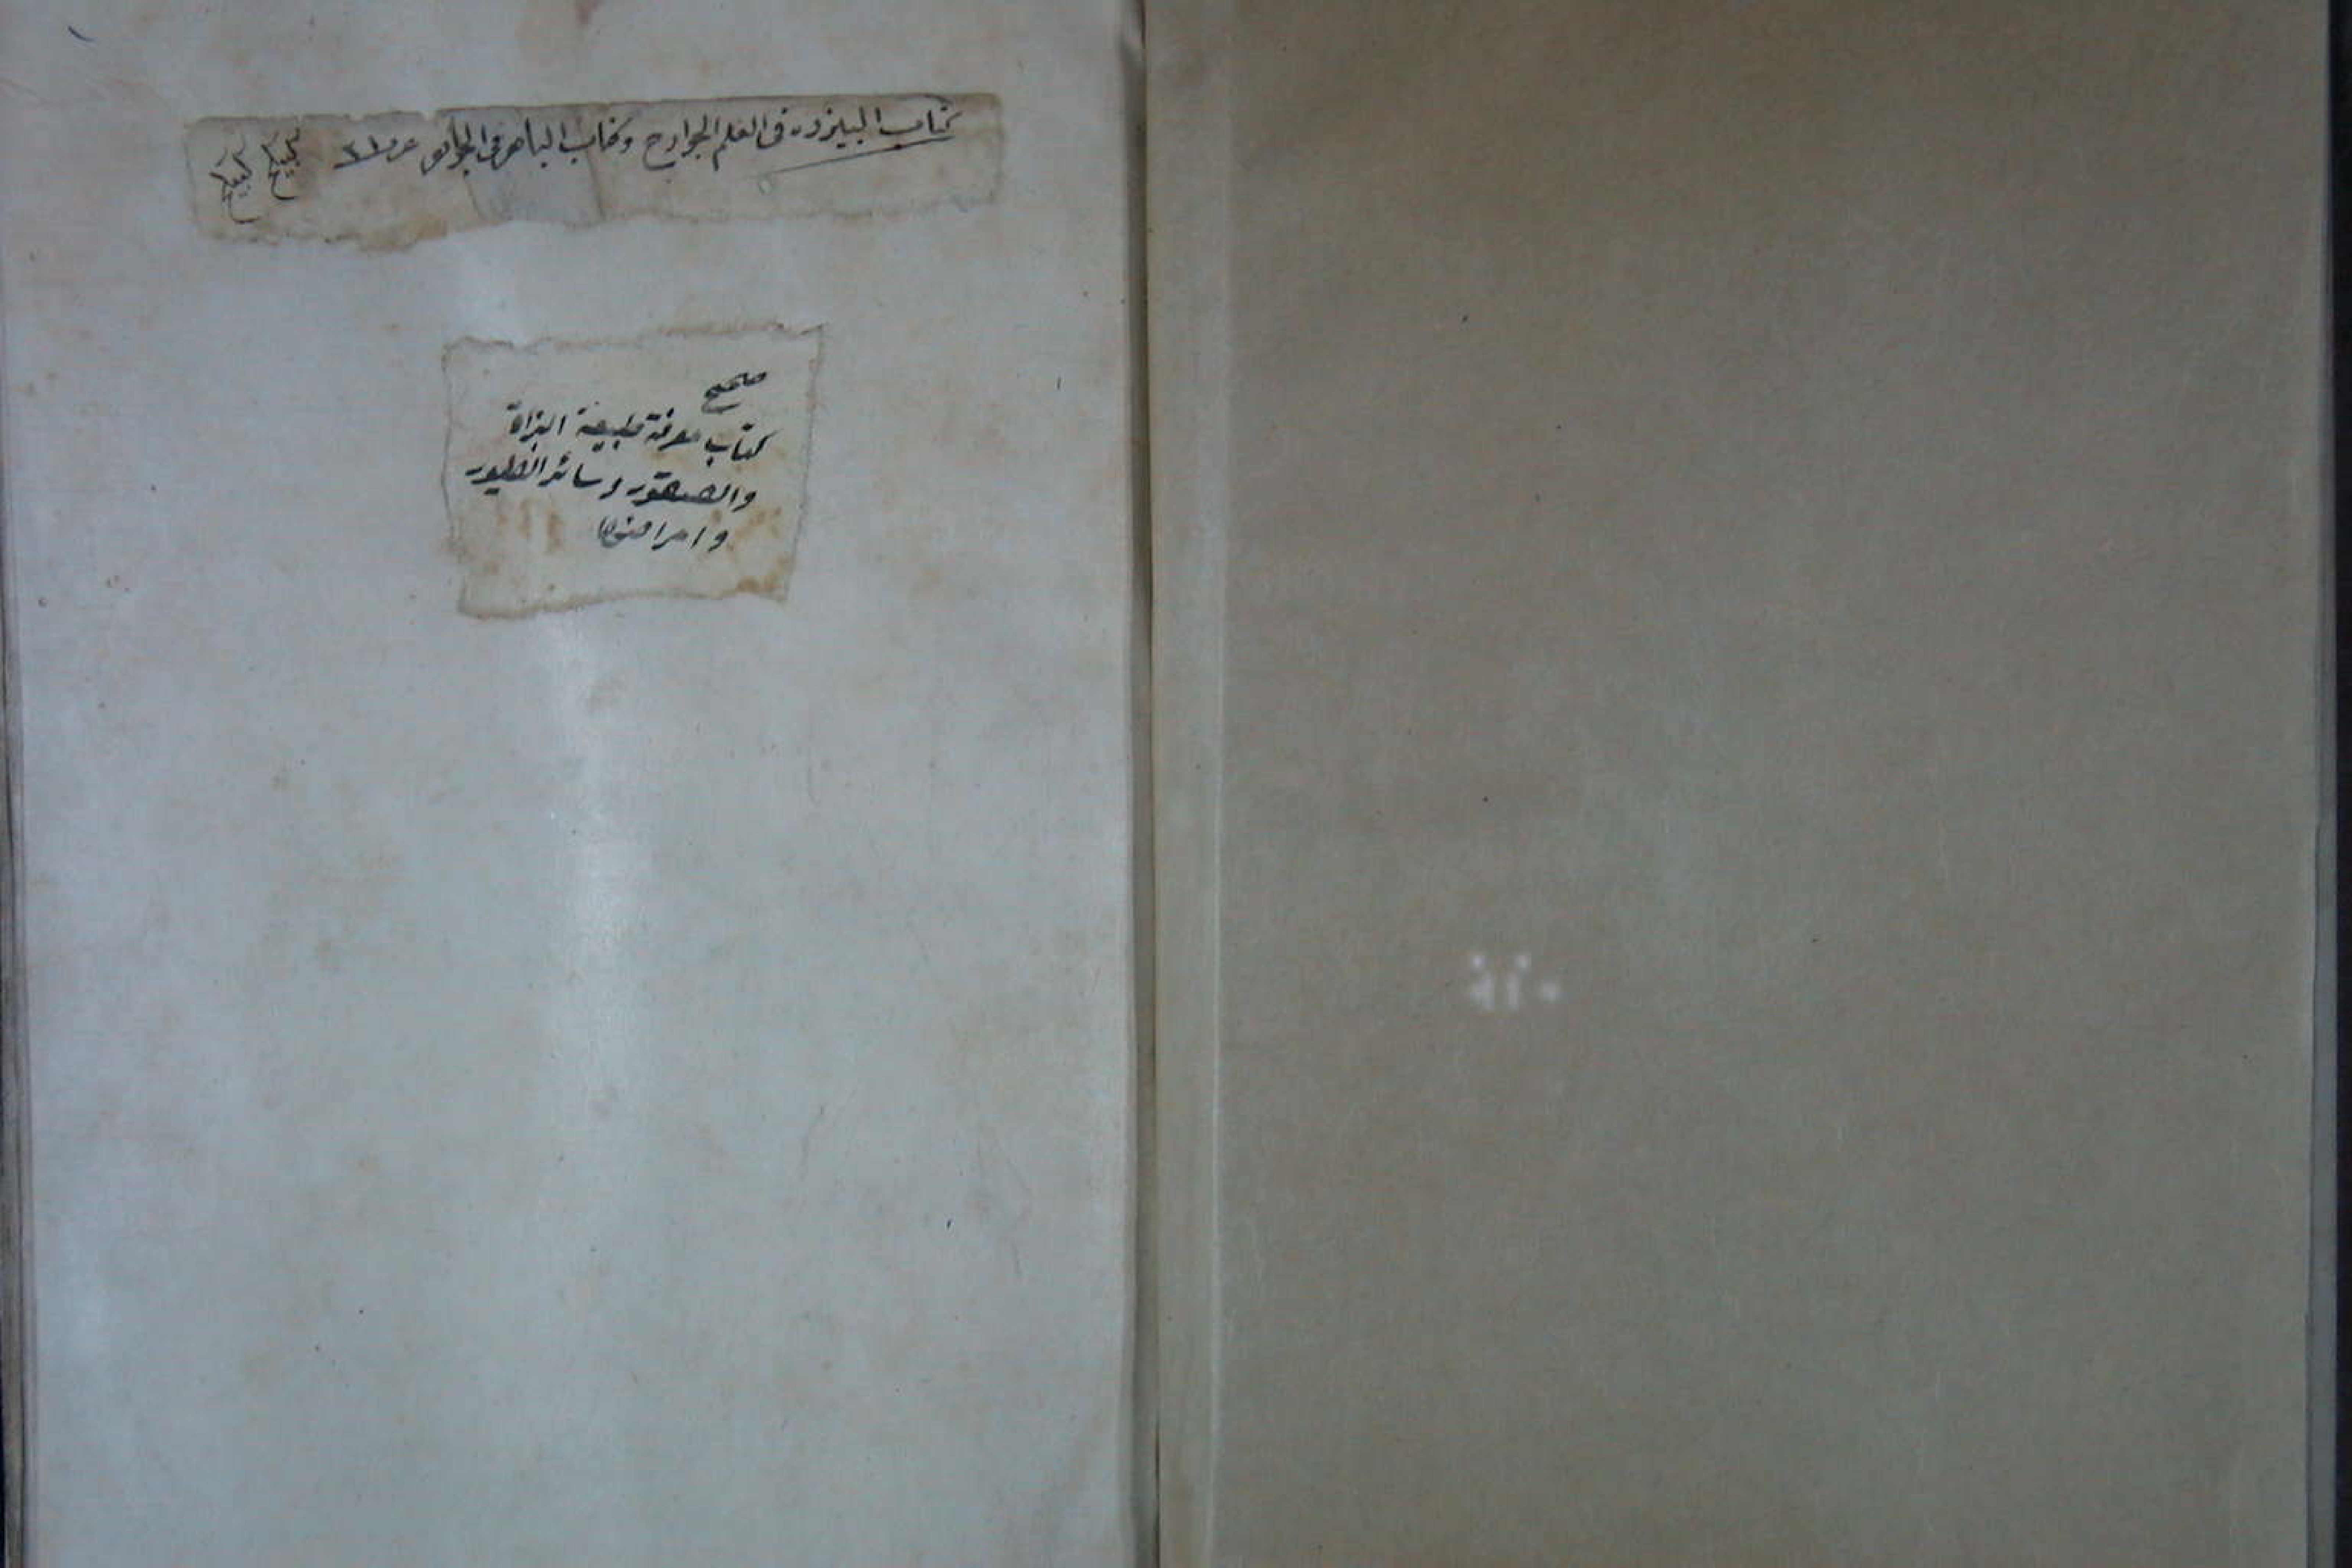 كتاب البيزره فى العلم الجوارح وكتاب الباهر فى الجواهر عدد ٢١ كبيكج كبيكج
صحيح
كتاب معرفة طبيعة البزاة
والصقور وسائر الطيور
وامراضها